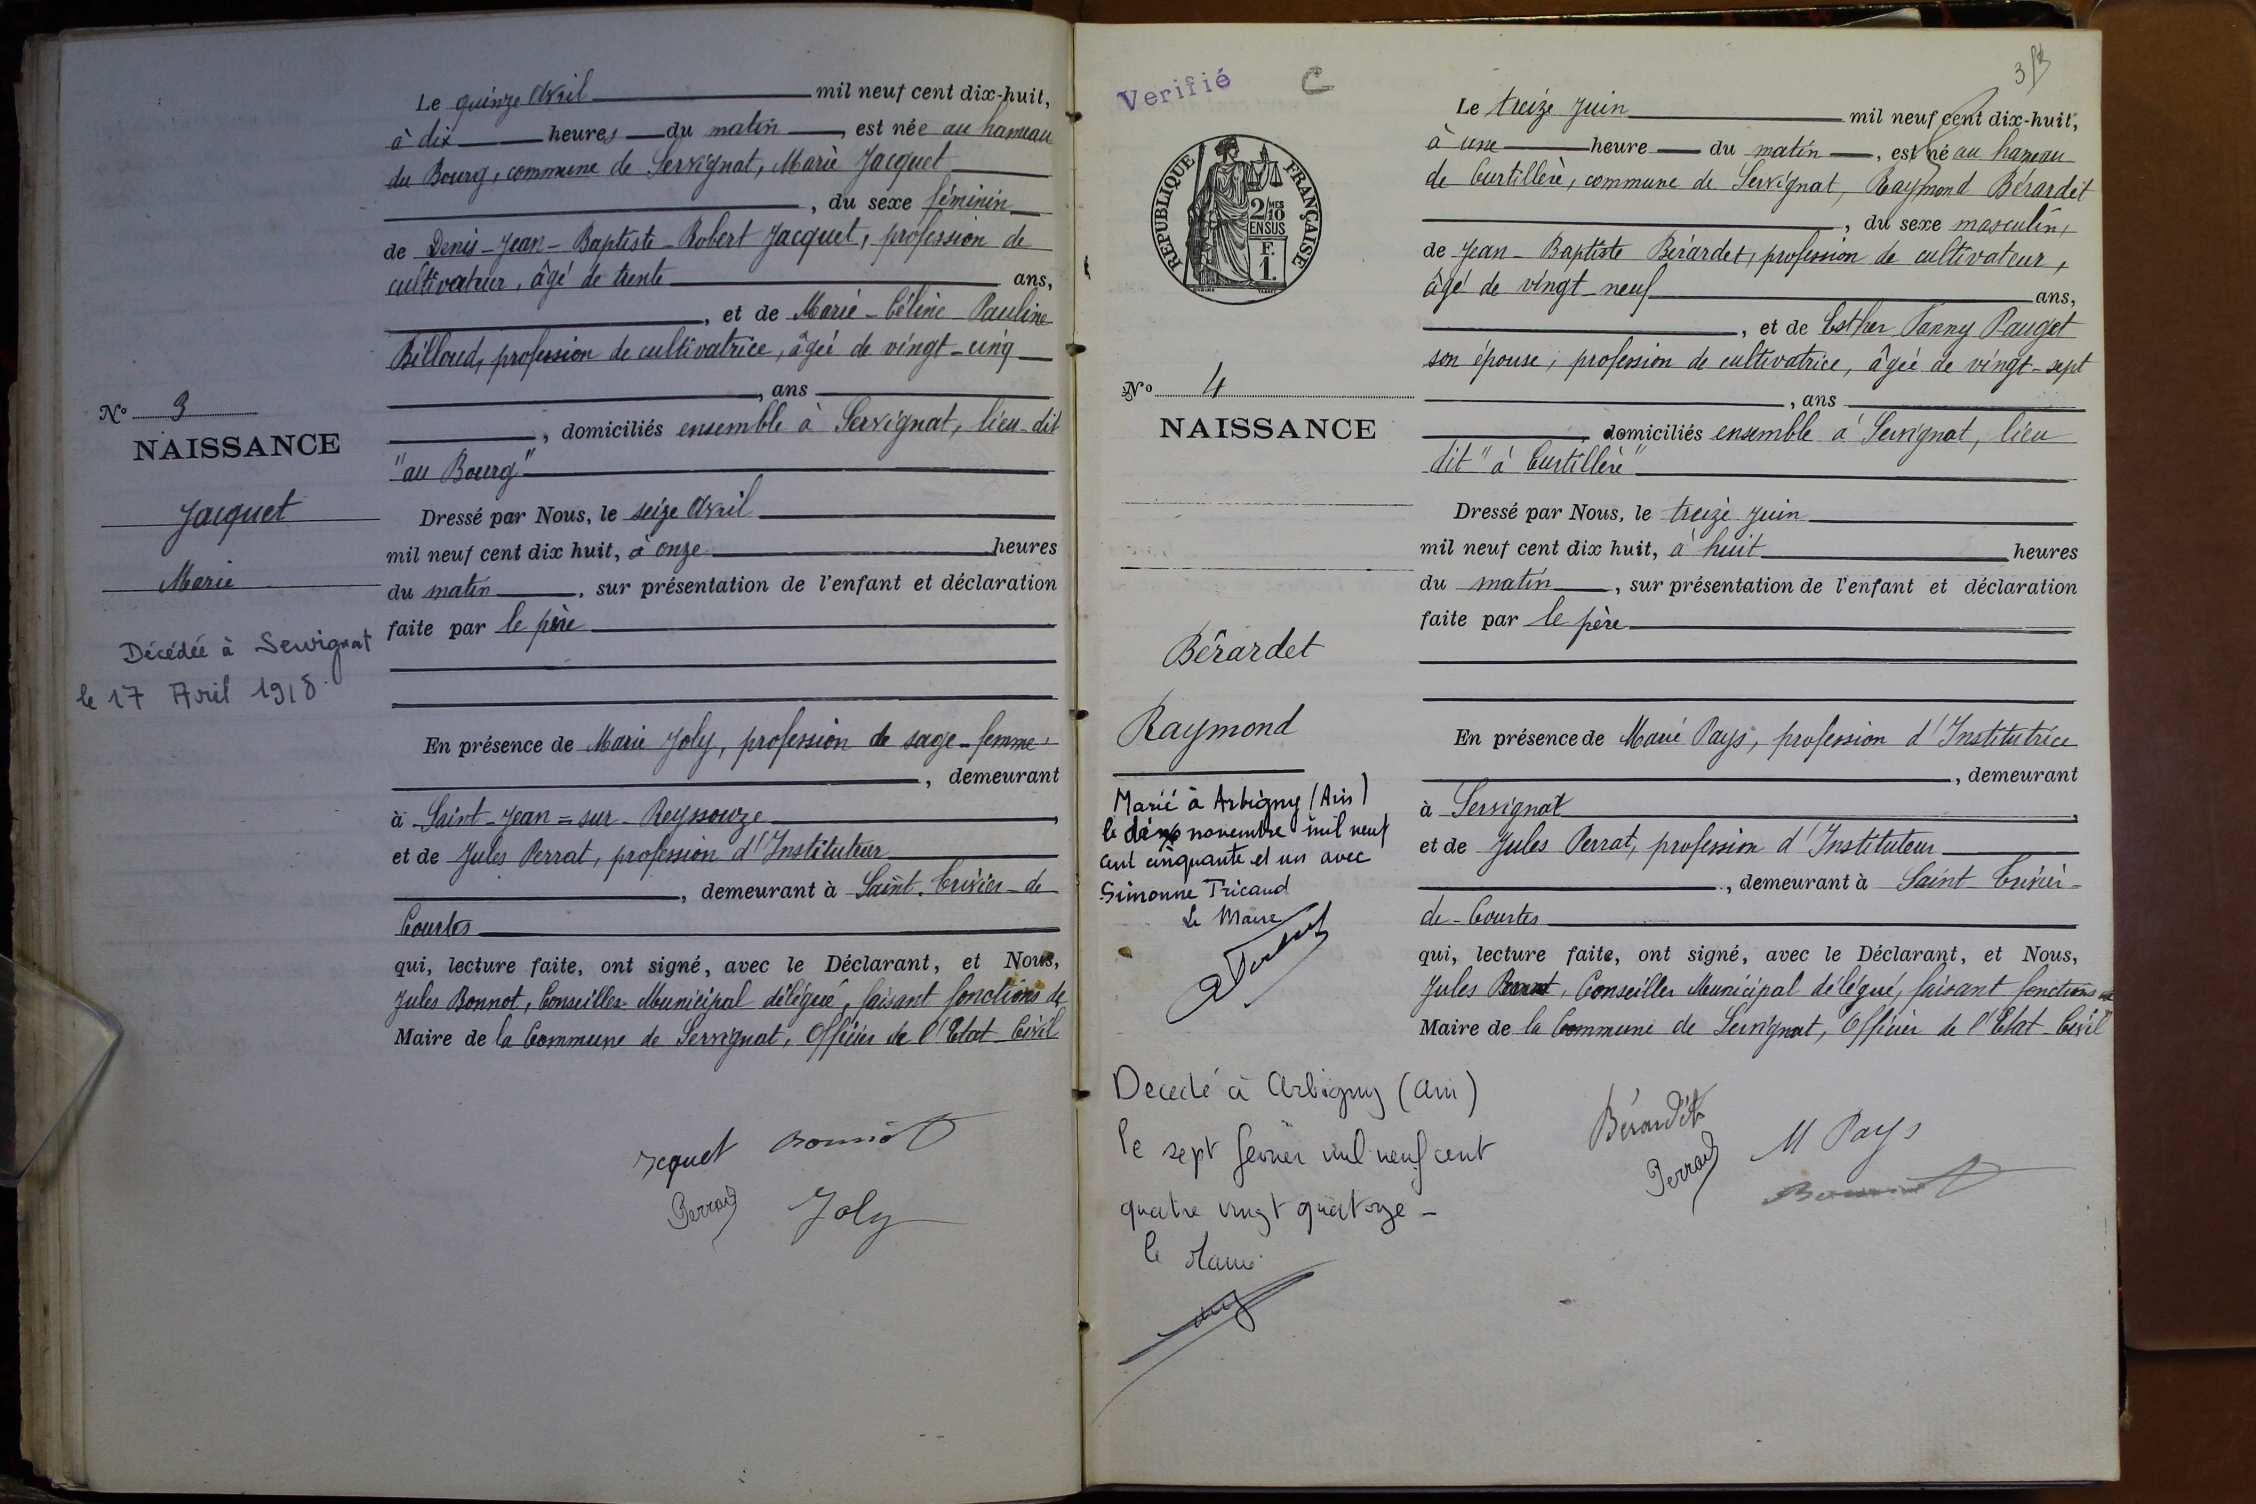 Le quinze Avril mil neuf cent dix-huit,
à dix heures du matin, est née au hameau
du Bourg, commune de Servignat, Marie Jacquet
, du sexe féminin
de Denis-Jean-Baptiste-Robert Jacquet, profession de
cultivateur, âgé de trente ans,
, et de Marie-Céline Pauline
Billoud, profession de cultivatrice, âgée de vingt-cinq
, ans
, domiciliés ensemble à Servignat, lieu dit
"au Bourg"
Nº 3
NAISSANCE
Jacquet
Marie
Décédée à Servignat
le 17 Avril 1918.
Dressé par Nous, le seize Avril
mil neuf cent dix huit, à onze heures
du matin, sur présentation de l'enfant et déclaration
faite par le père
En présence de Marie Joly, profession de sage-femme,
, demeurant
à Saint-Jean=sur-Reyssouze,
et de Jules Perrat, profession d'Instituteur
, demeurant à Saint-Trivier-de
Courtes
qui, lecture faite, ont signé, avec le Déclarant, et Nous,
Jules Bonnot, Conseiller Municipal délégué, faisant fonctions de
Maire de la Commune de Servignat, Officier de l'Etat Civil
Jcquet Bonnot
Perrat Joly
Verifié C
RÉPUBLIQUE FRANÇAISE
2/10 MES
EN SUS
F.
1.
Nº 4
NAISSANCE
Bérardet
Raymond
Marié à Arbigny (Ain)
le novembre mil neuf
cent cinquante et un avec
Simonne Tricaud
Le Maire
Decedé à Arbigny (Ain)
le sept fevrier mil neuf cent
quatre vingt quatorze -
le Maire
3
Le treize Juin mil neuf cent dix-huit,
à une heure du matin, est né au hameau
de Curtillère, commune de Servignat, Raymond Bérardet
, du sexe masculin,
de Jean-Baptiste Bérardet, profession de cultivateur,
âgé de vingt-neuf ans,
, et de Esther Fanny Pauget
son épouse, profession de cultivatrice, âgée de vingt-sept
, ans
, domiciliés ensemble à Servignat, lieu
dit "à Curtillère"
Dressé par Nous, le treize Juin
mil neuf cent dix huit, à huit heures
du matin, sur présentation de l'enfant et déclaration
faite par le père
En présence de Marie Pays, profession d'Institutrice
, demeurant
à Servignat,
et de Jules Perrat, profession d'Instituteur
, demeurant à Saint-Trivier-
de-Courtes
qui, lecture faite, ont signé, avec le Déclarant, et Nous,
Jules Bonnot, Conseiller Municipal délégué, faisant fonctions de
Maire de la Commune de Servignat, Officier de l'Etat Civil
Bérardet
Perrat M Pays
Bonnot